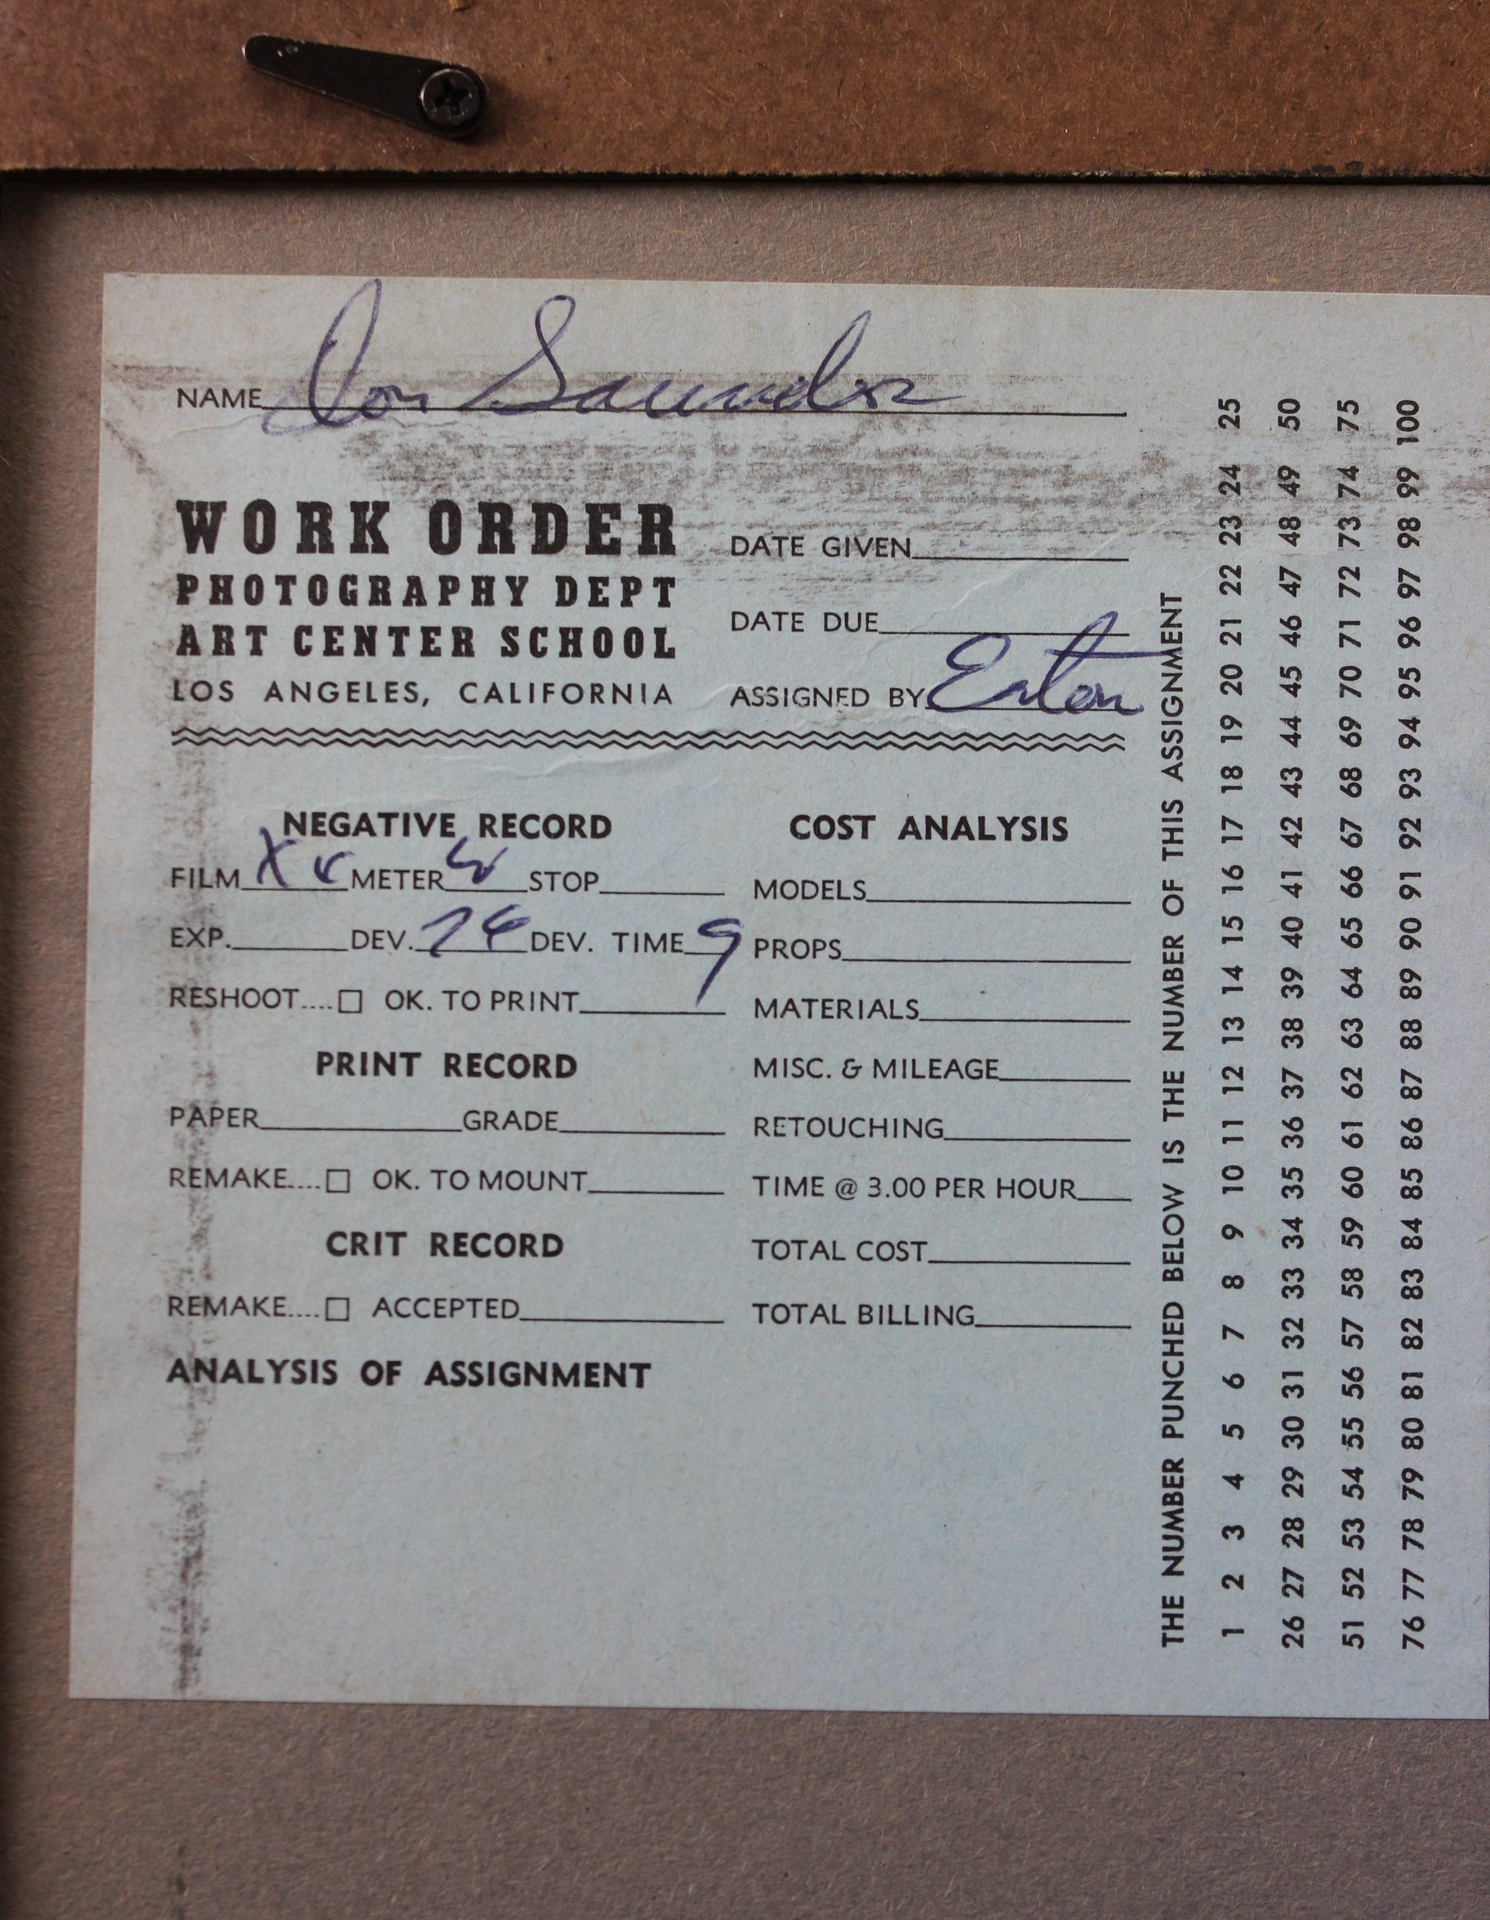 NAME Don Saunders
WORK ORDER
PHOTOGRAPHY DEPT
ART CENTER SCHOOL
LOS ANGELES, CALIFORNIA
DATE GIVEN
DATE DUE
ASSIGNED BY Eaton
NEGATIVE RECORD
FILM METER STOP
EXP. DEV. 76 DEV. TIME 9
RESHOOT.... □ OK. TO PRINT
PRINT RECORD
PAPER GRADE
REMAKE.... □ OK. TO MOUNT
CRIT RECORD
REMAKE.... □ ACCEPTED
ANALYSIS OF ASSIGNMENT
COST ANALYSIS
MODELS
PROPS
MATERIALS
MISC. & MILEAGE
RETOUCHING
TIME @ 3.00 PER HOUR
TOTAL COST
TOTAL BILLING
THE NUMBER PUNCHED BELOW IS THE NUMBER OF THIS ASSIGNMENT
1 2 3 4 5 6 7 8 9 10 11 12 13 14 15 16 17 18 19 20 21 22 23 24 25
26 27 28 29 30 31 32 33 34 35 36 37 38 39 40 41 42 43 44 45 46 47 48 49 50
51 52 53 54 55 56 57 58 59 60 61 62 63 64 65 66 67 68 69 70 71 72 73 74 75
76 77 78 79 80 81 82 83 84 85 86 87 88 89 90 91 92 93 94 95 96 97 98 99 100